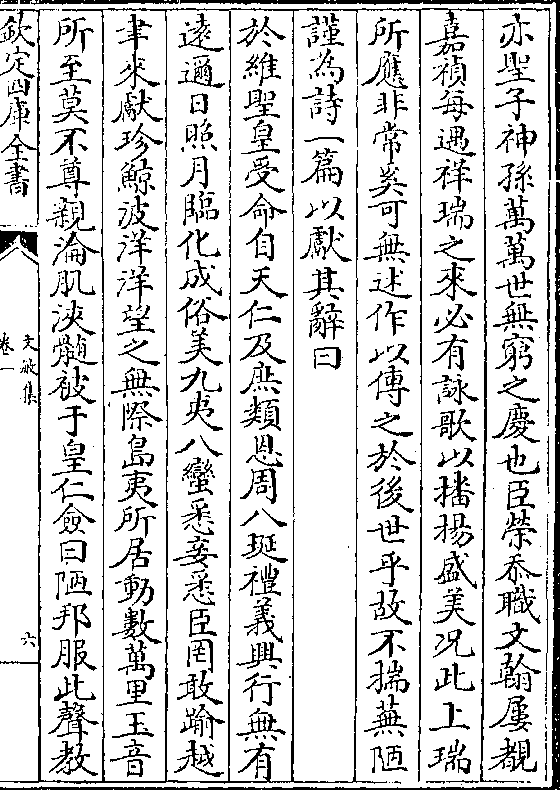 亦聖子神孫萬萬世無窮之慶也臣榮忝職文翰屢覩
嘉禎每遇祥瑞之來必有詠歌以播揚盛美况此上瑞
所應非常奚可無述作以傳之於後世乎故不揣蕪陋
謹為詩一篇以獻其辭曰
於維聖皇受命自天仁及庶類恩周八埏禮義興行無有
遠邇日照月臨化成俗美九夷八蠻悉妾悉臣罔敢踰越
聿來獻珍鯨波洋洋望之無際島夷所居動數萬里玉音
所至莫不尊親淪肌浹髓被于皇仁僉曰陋邦服此聲教
欽定四庫全書
文敏集
卷一
六